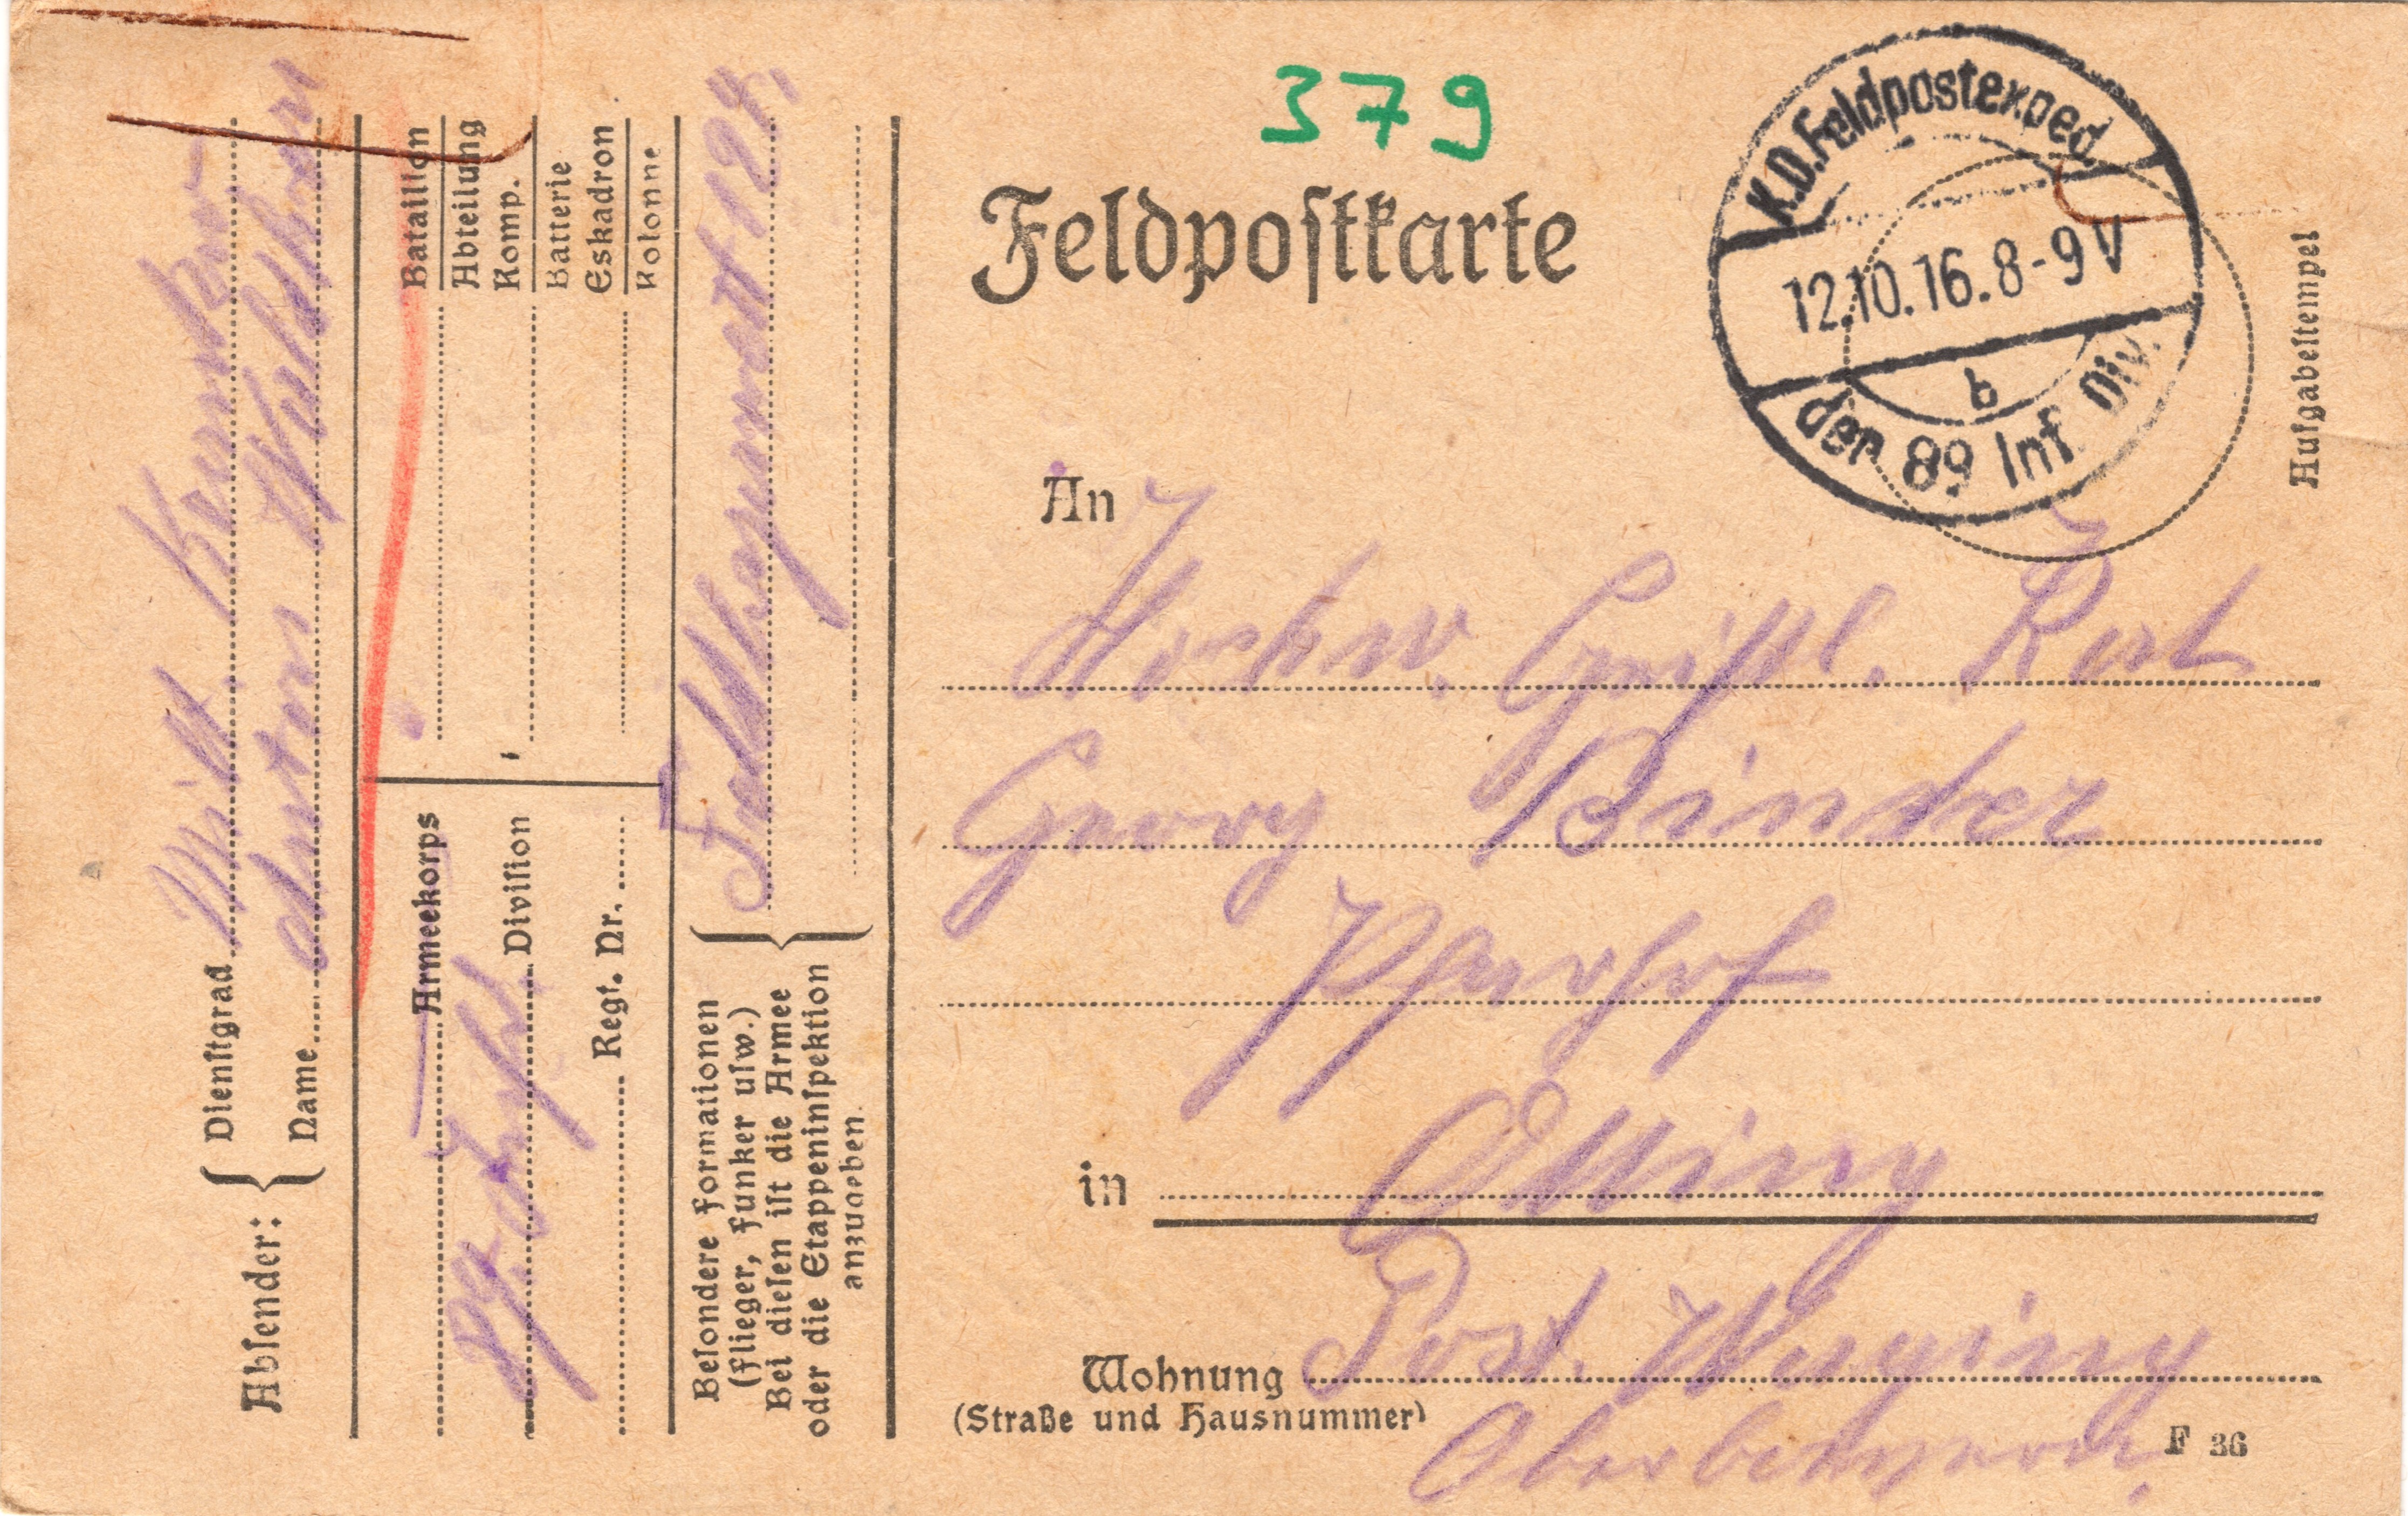 379
Feldpostkarte
K.D. Feldpostexped.
12.10.16. 8-9 V
b
der 89 Inf. Div.
Aufgabestempel
An
Hochw. Geistl. Rat
Georg Binder
Pfarrhof
in Otting
Wohnung Post. Waging
(Straße und Hausnummer)
Oberbayern.
F 36
Absender:
Dienstgrad Milt. Krankw
Name Anton Waldherr
Armeekorps
Division
Regt. Nr.
Bataillon
Abteilung
Komp.
Batterie
Eskadron
Kolonne
Besondere Formationen
(Flieger, Funker usw.)
Bei diesen ist die Armee
oder die Etappeninspektion
anzugeben.
Feldlazarett 124,